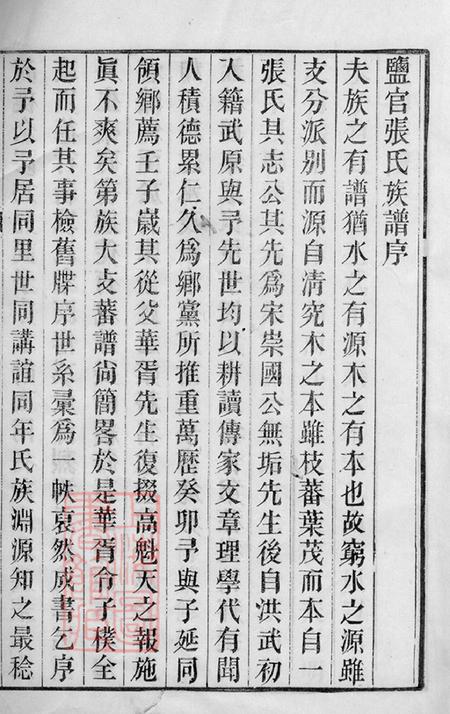 鹽官張氏族譜序
夫族之有譜猶水之有源木之有本也故窮水之源雖
支分派别而源自清究木之本雖枝蕃葉茂而本自一
張氏其志公其先為宋崇國公無垢先生後自洪武初
入籍武原與予先世均以耕讀傳家文章理學代有聞
人積德累仁久為鄉黨所推重萬歷癸卯予與子延同
領鄉薦壬子歲其從父華胥先生復掇高魁天之報施
眞不爽矣第族大支蕃譜尙簡畧於是華胥令子樸全
起而任其事檢舊牒序世系彚為一帙裒然成書乞序
於予以予居同里世同講誼同年氏族淵源知之最稔